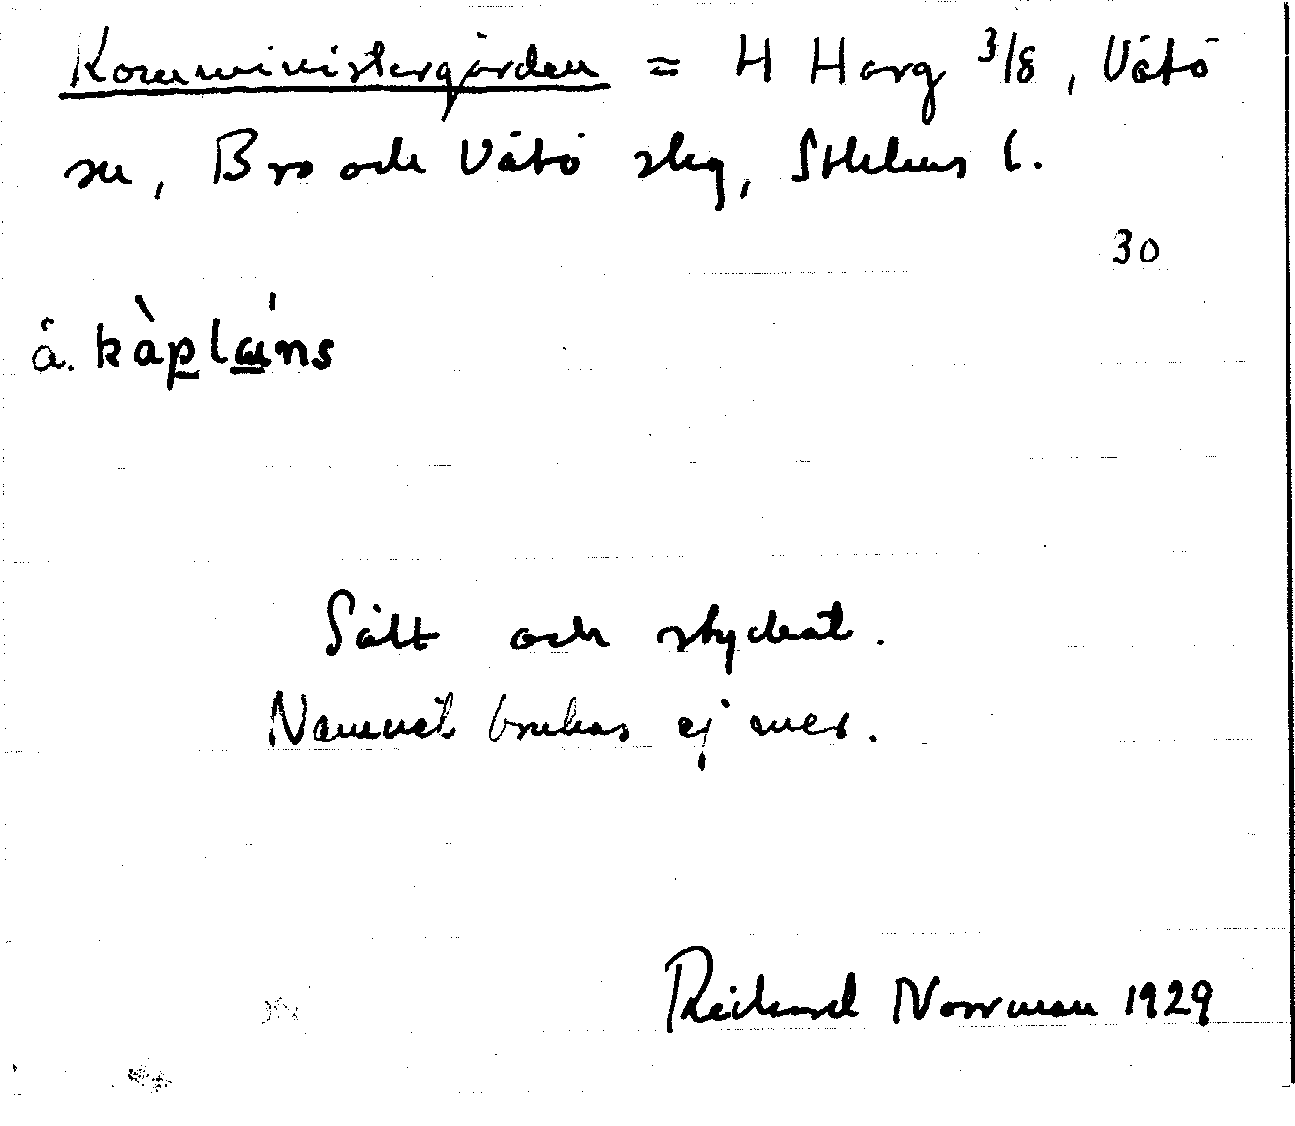 Kommunistergården = H Harg 3/8, Vätö
sn, Bro och Vätö skg, Sthlms l.
30
å. kàplains
Sålt och styckat.
Namnet brukas ej mer.
Rickard Norrman 1929